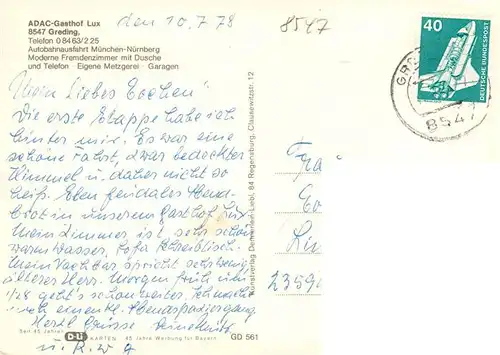 ADAC-Gasthof Lux
8547 Greding,
Telefon 0 84 63/2 25
Autobahnausfahrt München-Nürnberg
Moderne Fremdenzimmer mit Dusche
und Telefon · Eigene Metzgerei · Garagen
den 10.7.78
8547
40
DEUTSCHE BUNDESPOST
GR
8547
Mein liebes Evchen!
Die erste Etappe habe ich
hinter mir. Es war eine
schöne Fahrt, zwar bedeckter
Himmel u. daher nicht so
heiß. Eben feudales Abend-
brot in unserem Gasthof Lux.
Mein Zimmer ist sehr schön
warm Wasser, Sofa Schreibtisch.
Mein Nachbar spricht sehr wenig
älterer Herr. Morgen früh um
1/28 geht's schon weiter. Ich mache
noch einen kl. Abendspaziergang.
Herzl. Grüsse
Kunstverlag Liebl, 84 Regensburg, Clausewitzstr. 12
Fra
Lu
2359
Seit 45 Jahren D-Li KARTEN 45 Jahre Werbung für Bayern
GD 561